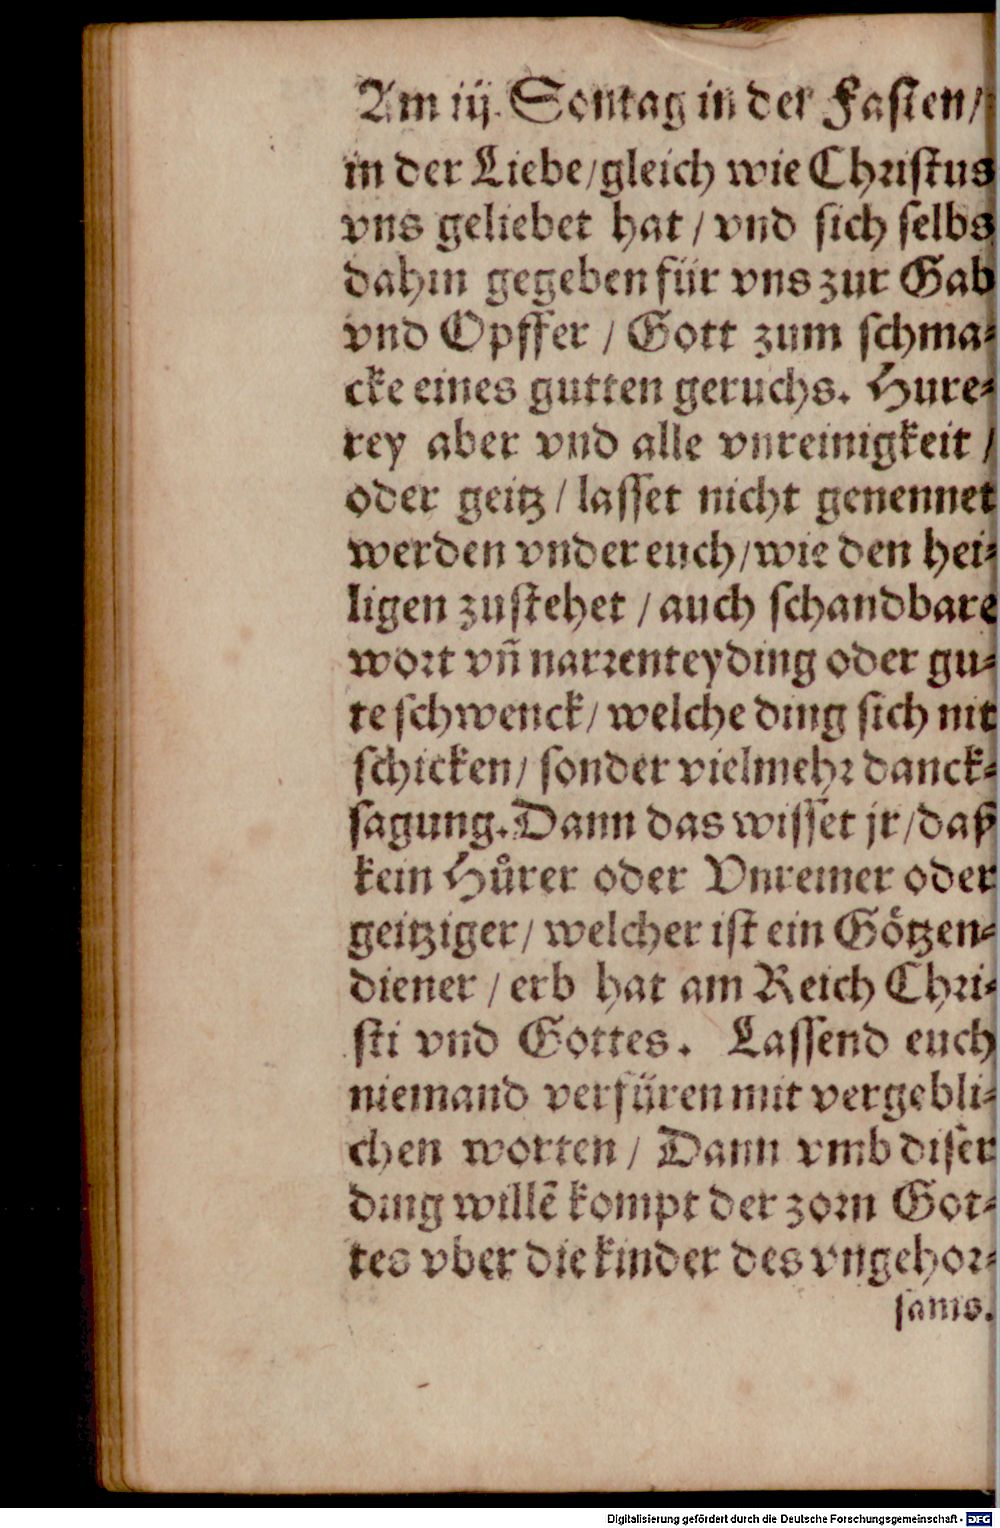 Am iij. Sontag in der Fasten/
in der Liebe/gleich wie Christus
vns geliebet hat / vnd sich selbs
dahin gegeben für vns zur Gab
vnd Opffer / Gott zum schma⸗
cke eines gutten geruchs. Hure⸗
rey aber vnd alle vnreinigkeit /
oder geitz / lasset nicht genennet
werden vnder euch/wie den hei⸗
ligen zustehet / auch schandbare
wort vñ narrenteyding oder gu⸗
te schwenck/ welche ding sich nit
schicken/ sonder vielmehr danck⸗
sagung. Dann das wisset jr/daß
kein Hůrer oder Vnreiner oder
geitziger/ welcher ist ein Götzen⸗
diener / erb hat am Reich Chri⸗
sti vnd Gottes. Lassend euch
niemand verfüren mit vergebli⸗
chen worten / Dann vmb diser
ding willē kompt der zorn Got⸗
tes vber die kinder des vngehor⸗
sams.
Digitalisierung gefördert durch die Deutsche Forschungsgemeinschaft - DFG